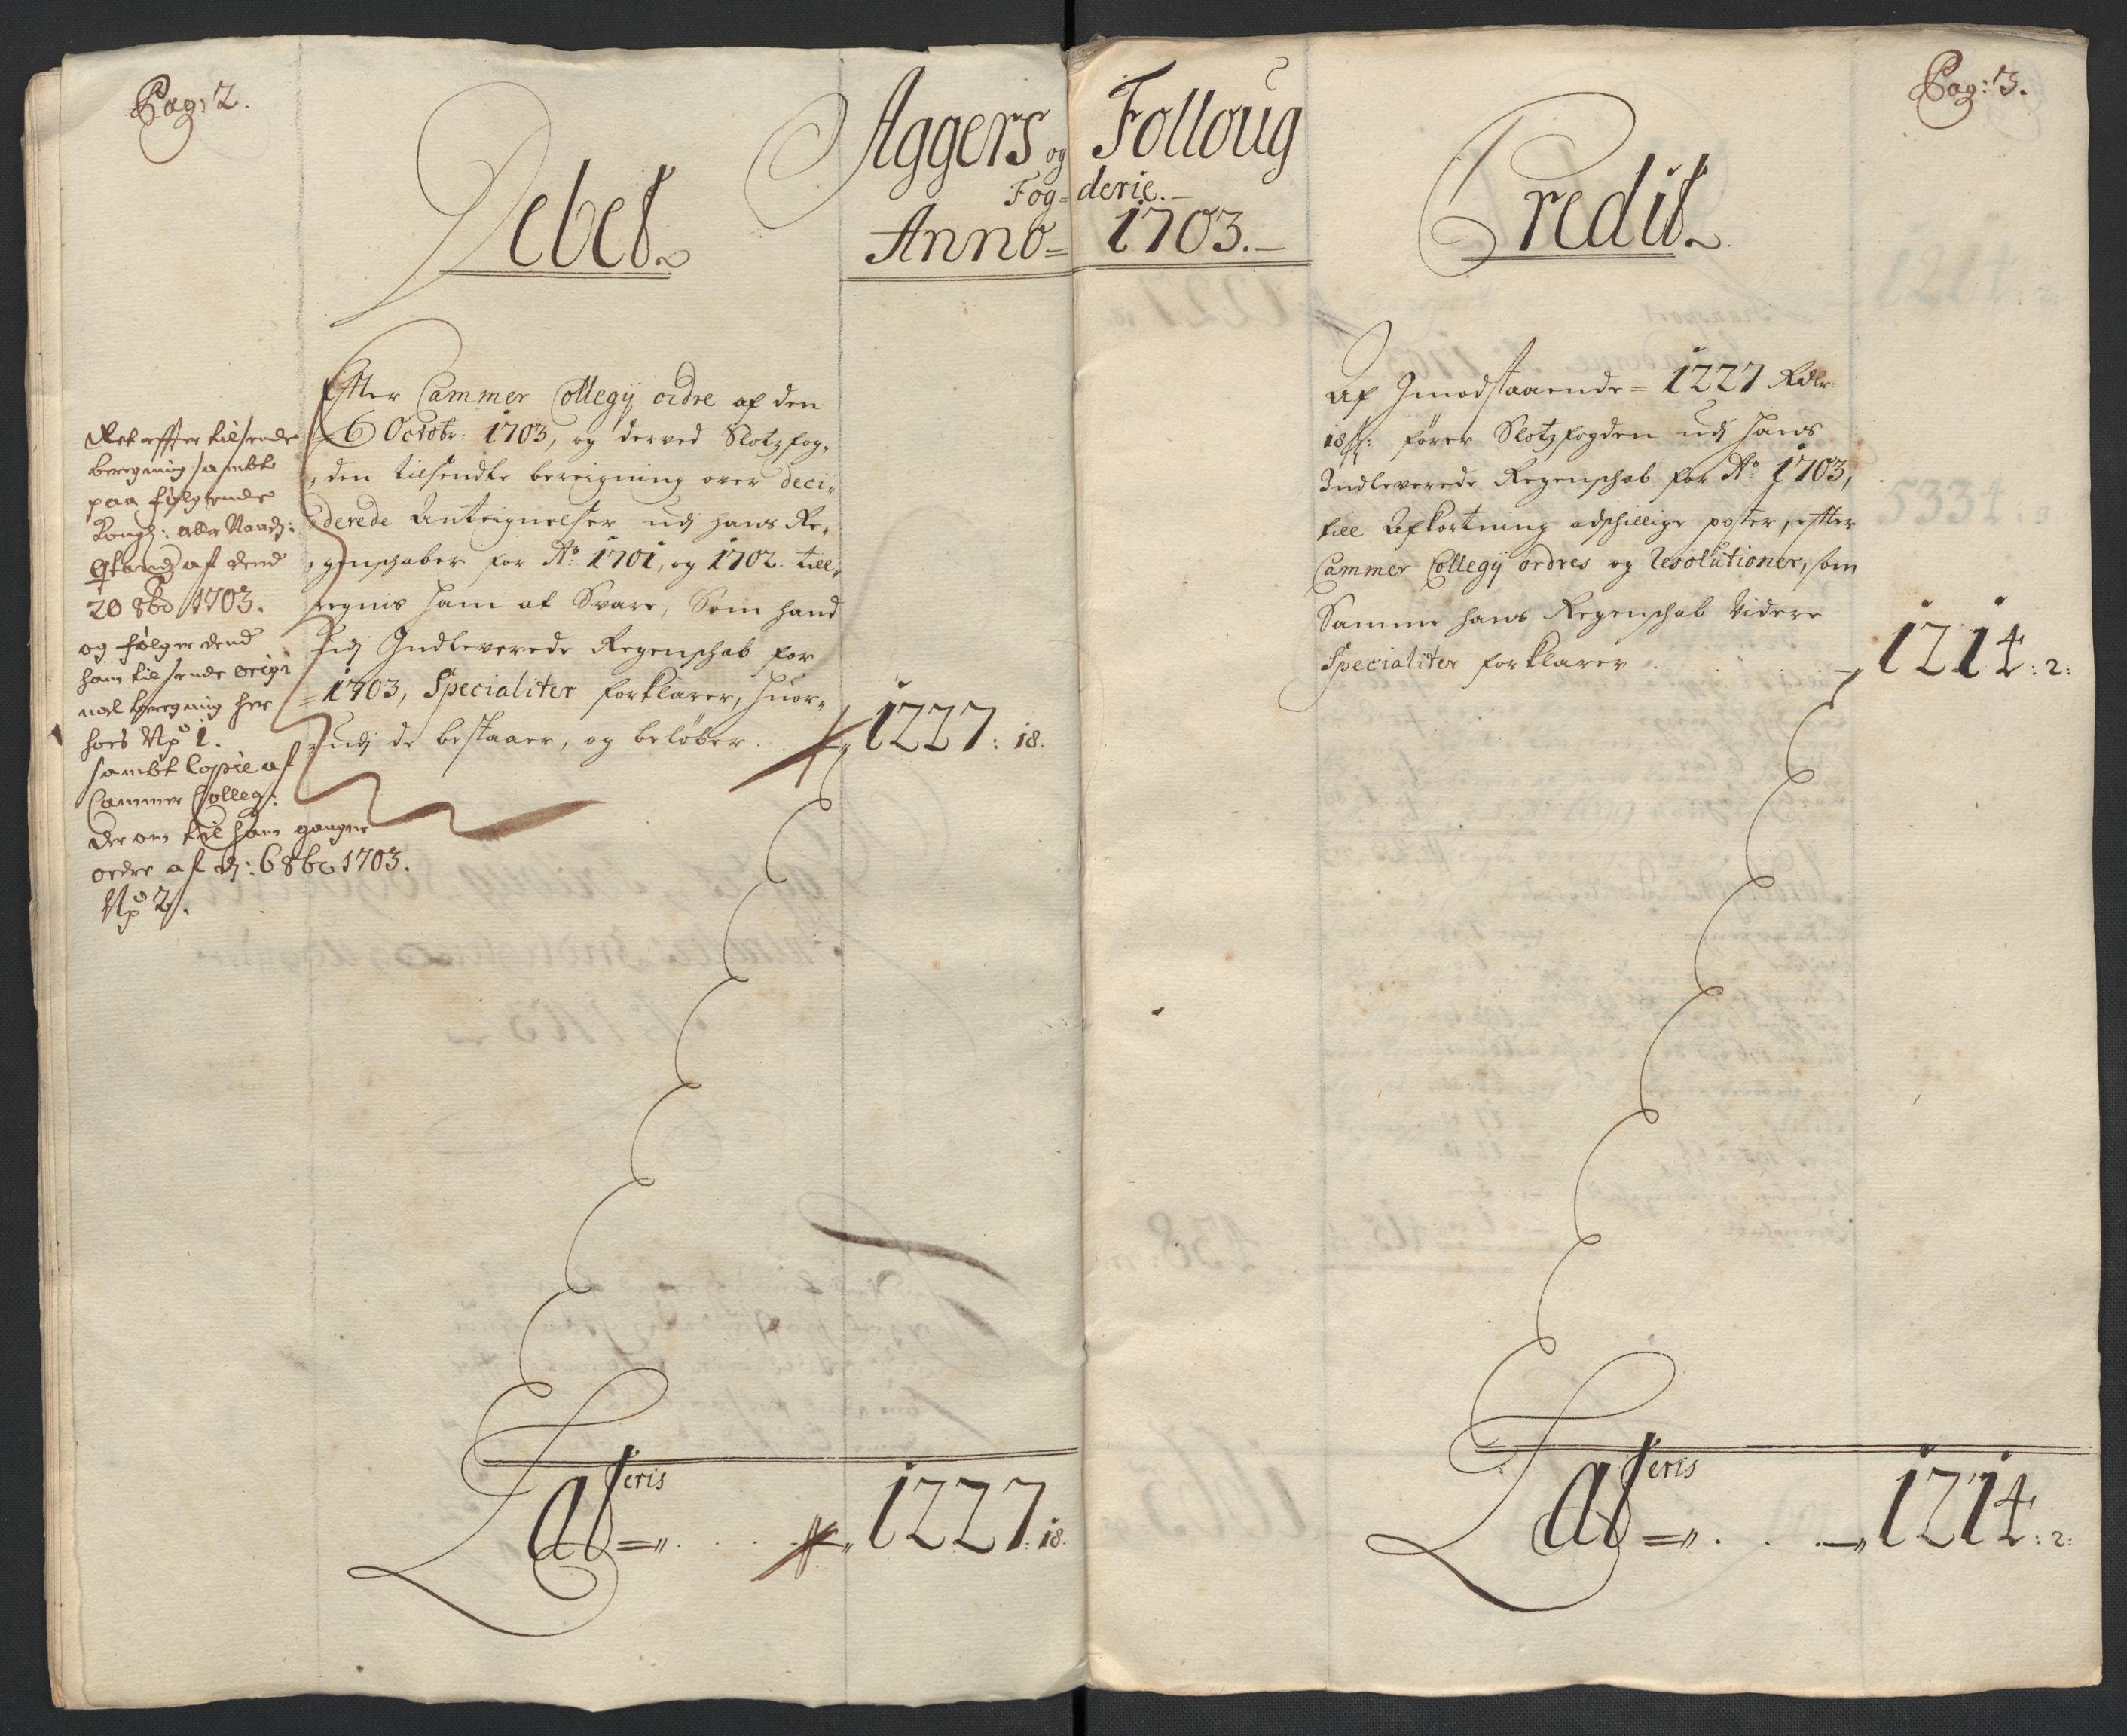 Pag: 2.
Debet.
Aggers og Folloug
Fog= derie.
Anno= 1703.
Credit.
Pag: 3.
Ret effter tilsende
beregning sambt
paa følgende
Kongl: aller Naad:
af dend
20 8br 1703.
og følger dend
ham tilsende origi
nal beregning her
hoes No 1.
sambt Copie af
Cammer Colleg:
der om til ham gangne
ordre af d: 6 8br 1703.
No 2.
Efter Cammer Collegij ordre af den
6 Octobr: 1703, og derved Slotzfog,
den tilsendte bereigning over deci,
derede Anteignelser udj hans Re,
genschaber for Ao: 1701, og 1702. till,
regnis ham at Svare, Som hand
udj Indleverede Regenschab for
1703, Specialiter forklarer, huor,
udj de bestaaer, og beløber . . 1227: 18.
Lateris
. . . 1227: 18.
Af Imodstaaende= 1227 Rdlr:
18 s: fører Slotzfogden udj hans
Indleverede Regenschab for Ao: 1703,
till Afkortning adschillige poster, effter
Cammer Collegij ordres og Resolutioner, som
Samme hans Regenschab Videre
Specialiter forklarer . . . . 1214: 2:
Lateris
. . . 1214: 2: